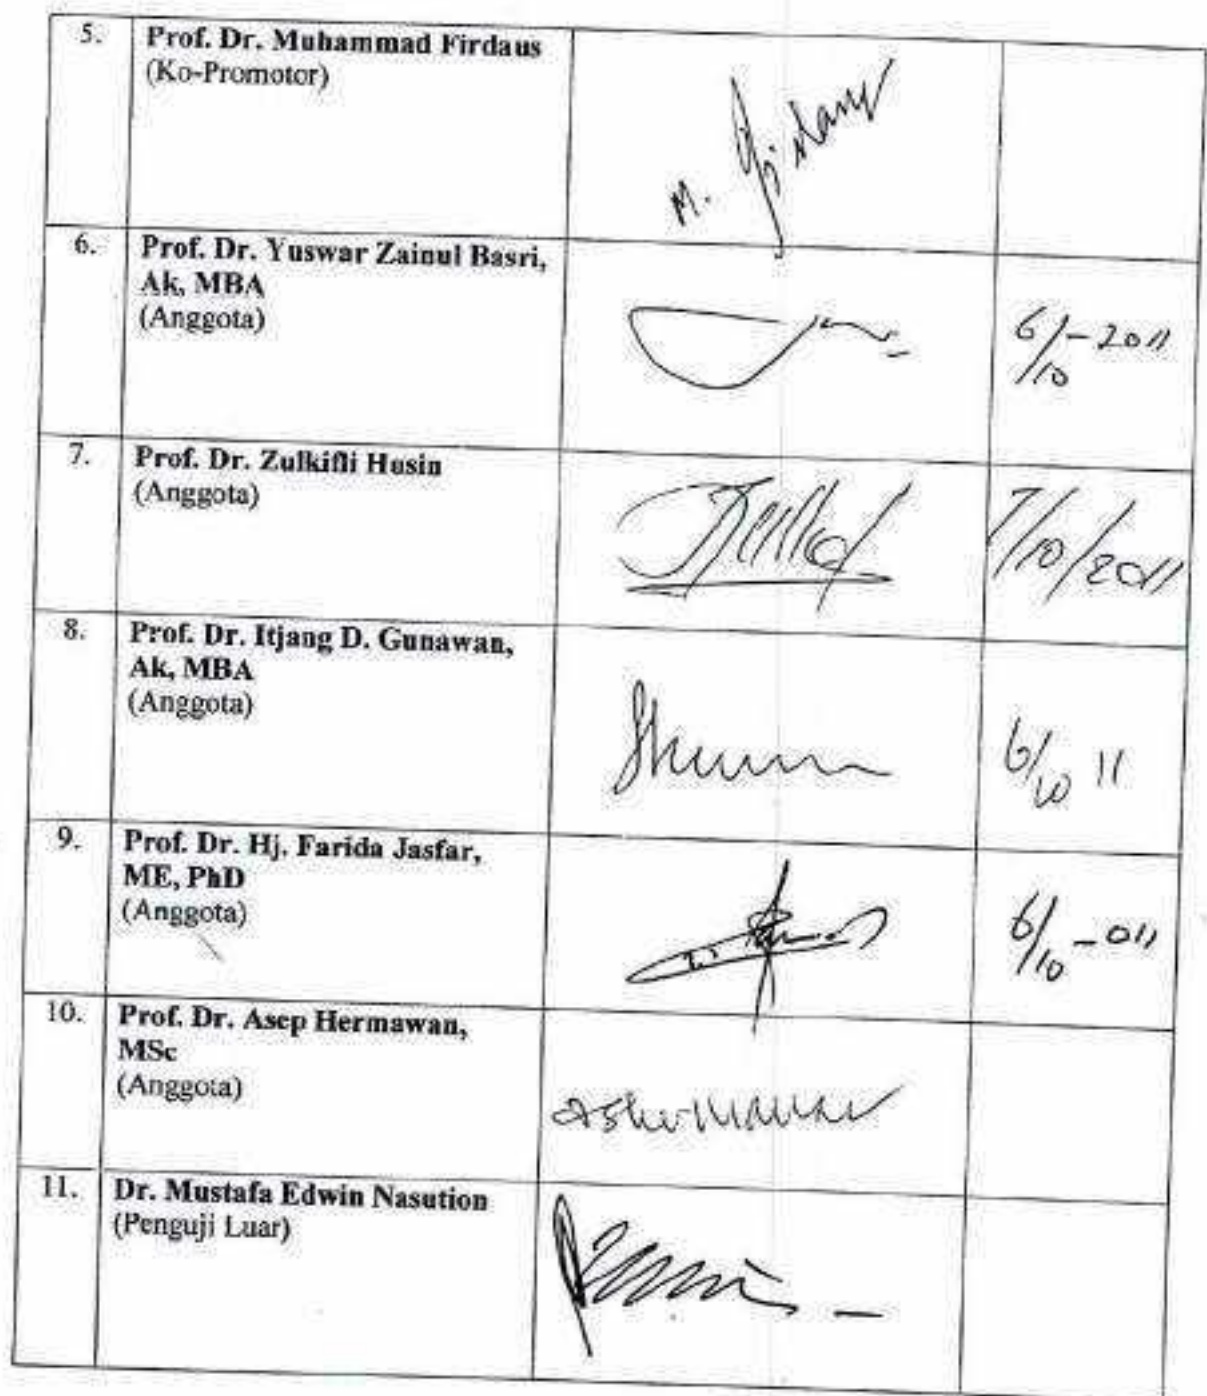 5. Prof. Dr. Muhammad Firdaus
(Ko-Promotor)
M. Firdaus
6. Prof. Dr. Yuswar Zainul Basri,
Ak, MBA
(Anggota)
6/10-2011
7. Prof. Dr. Zulkifli Husin
(Anggota)
7/10/2011
8. Prof. Dr. Itjang D. Gunawan,
Ak, MBA
(Anggota)
6/10 11
9. Prof. Dr. Hj. Farida Jasfar,
ME, PhD
(Anggota)
6/10-011
10. Prof. Dr. Asep Hermawan,
MSc
(Anggota)
11. Dr. Mustafa Edwin Nasution
(Penguji Luar)